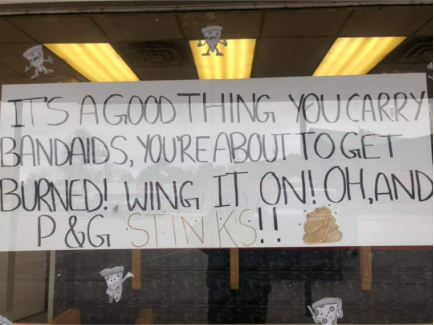 IT'S A GOOD THING YOU CARRY
BANDAIDS, YOU'RE ABOUT TO GET
BURNED! WING IT ON! OH, AND
P & G STINKS!!